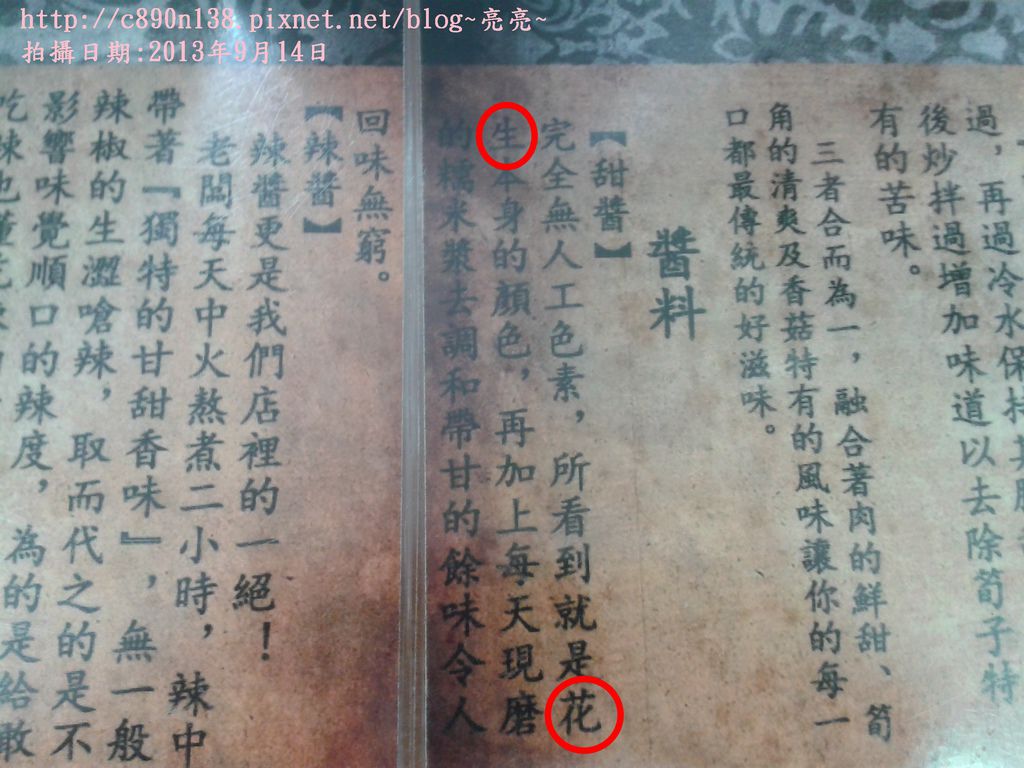 http://c890n138.pixnet.net/blog~亮亮~
拍攝日期:2013年9月14日
過，再過冷水保持其
後炒拌過增加味道以去除筍子特
有的苦味。
三者合而為一，融合著肉的鮮甜、筍
角的清爽及香菇特有的風味讓你的每一
口都最傳統的好滋味。
醬料
【甜醬】
完全無人工色素，所看到就是花
生本身的顏色，再加上每天現磨
的糯米漿去調和帶甘的餘味令人
回味無窮。
【辣醬】
辣醬更是我們店裡的一絕！
老闆每天中火熬煮二小時，辣中
帶著『獨特的甘甜香味』，無一般
辣椒的生澀嗆辣，取而代之的是不
影響味覺順口的辣度，為的是給敢